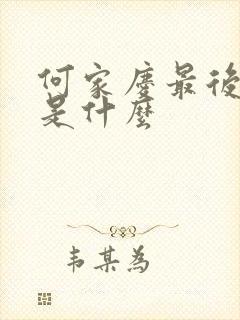 何家慶最後
是什麼
韦某為